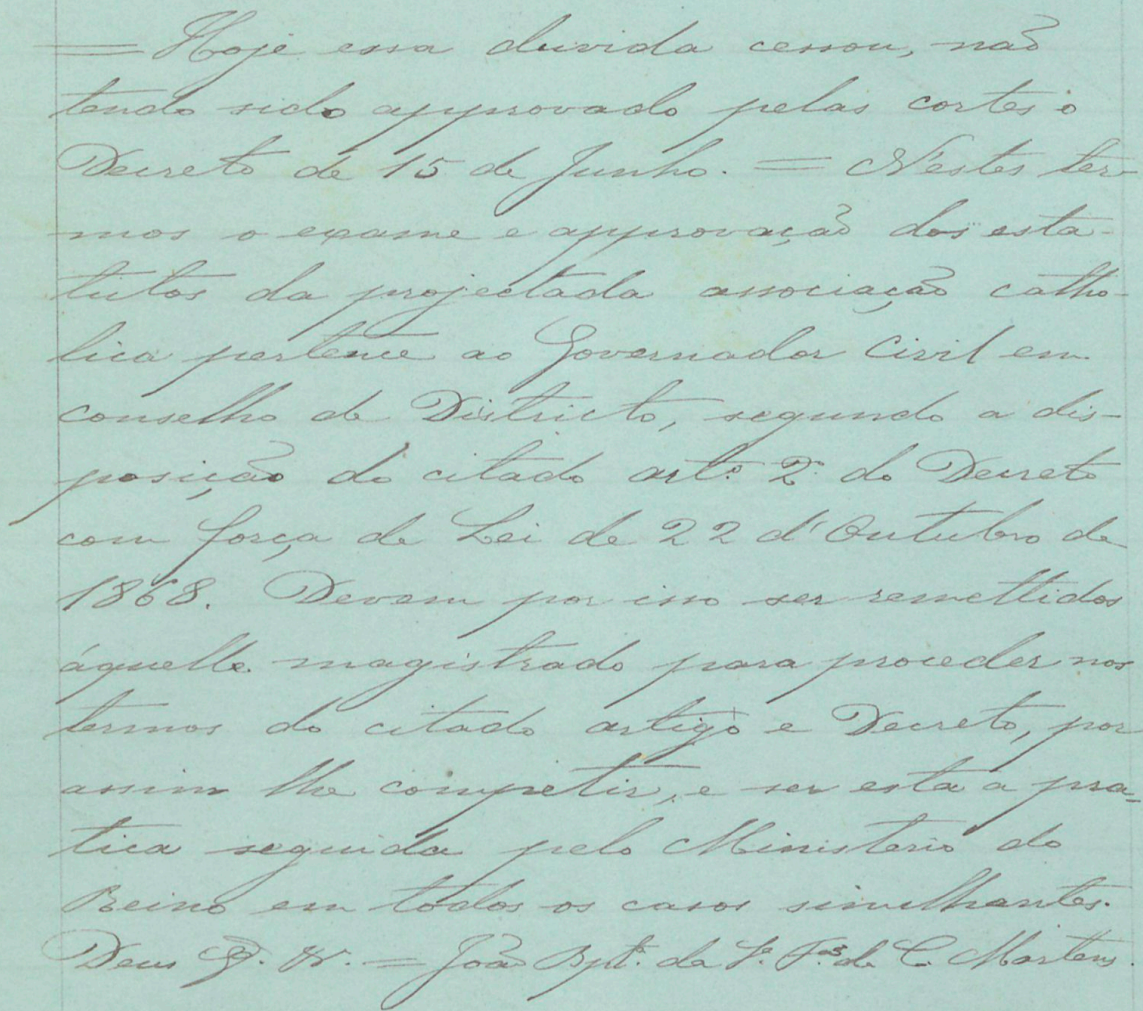 = Hoje essa duvida cessou, não
tendo sido approvado pelas cortes o
Decreto de 15 de Junho. = N'estes ter-
mos o exame e approvação dos esta-
tutos da projectada associação catho-
lica pertence ao Governador Civil em
conselho de Districto, segundo a dis-
posição do citado artº 2º do Decreto
com força de Lei de 22 d'Outubro de
1868. Devem por isso ser remettidos
áquelle magistrado para proceder nos
termos do citado artigo e Decreto, por
assim lhe competir, e ser esta a pra-
tica seguida pelo Ministerio do
Reino em todos os casos similhantes.
Deus G. V. = João Bptª da Sª Fªº de C. Martens.